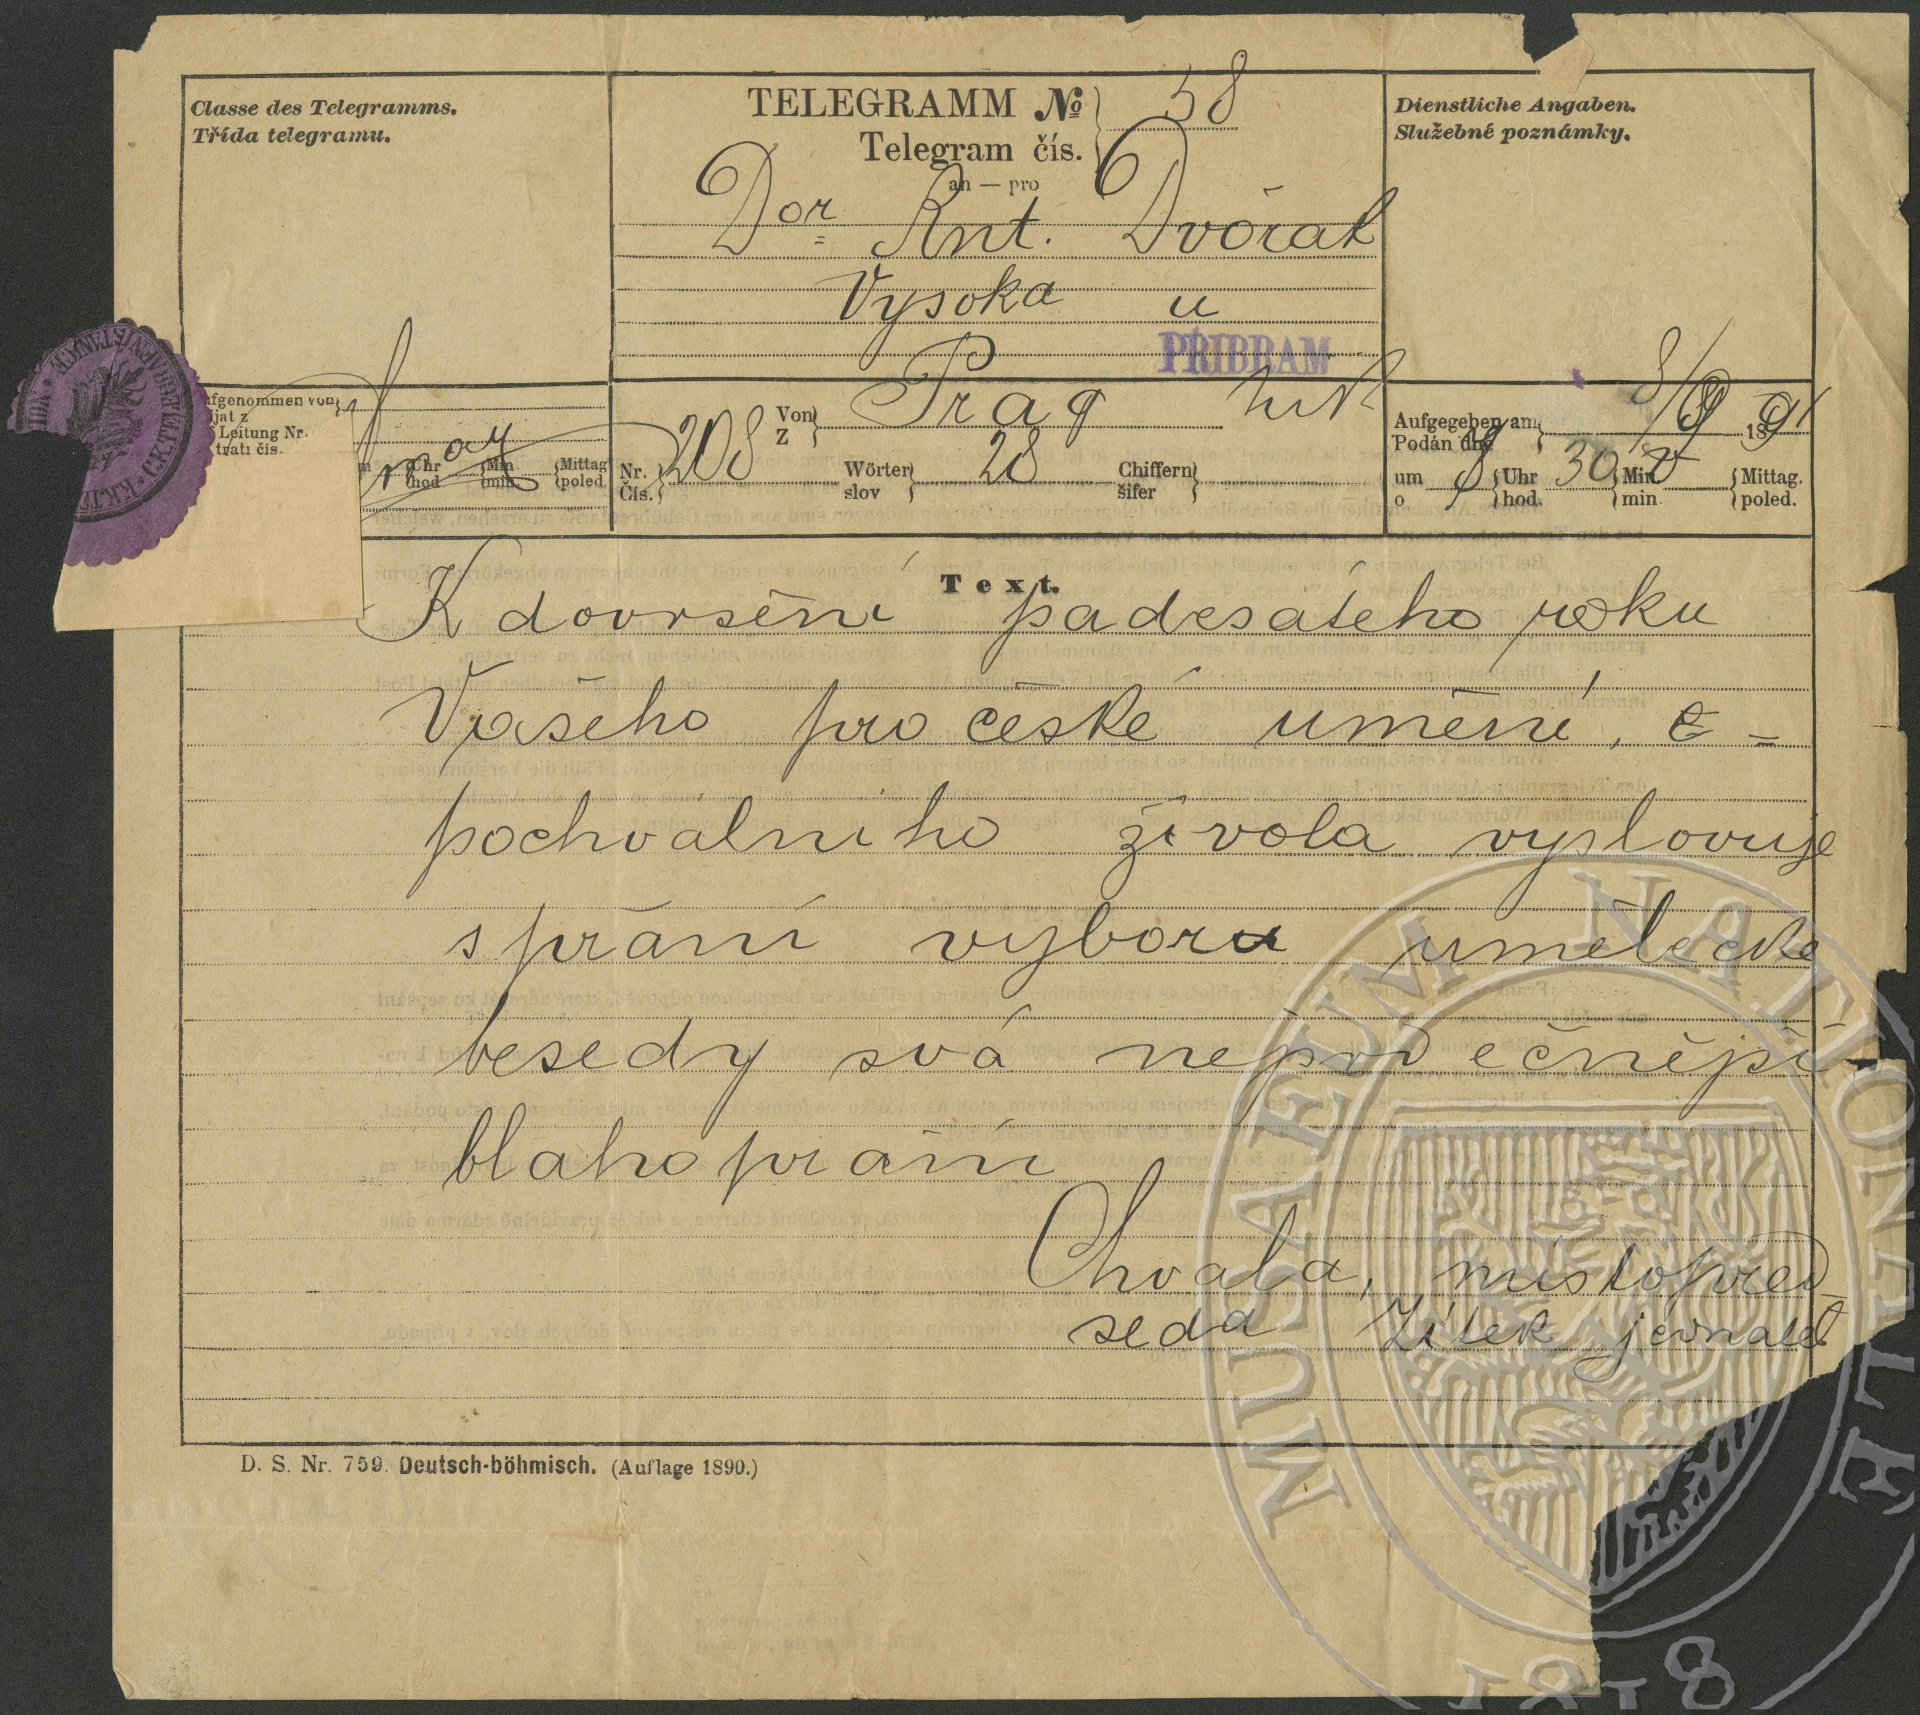 Classe des Telegramms.
Třída telegramu.
TELEGRAMM No 58
Telegram čís.
an — pro
Dor Ant. Dvořak
Vysoka u
PŘIBRAM
Dienstliche Angaben.
Služebné poznámky.
fgenommen von
jat z
Leitung Nr.
trati čís.
Uhr
hod
Min
min.
Mittag
poled.
Von
Z
Prag
Nr.
Čís.
208
Wörter
slov
28
Chiffern
šifer
Aufgegeben am
Podán dne
8/9 1891
um
o
8
Uhr
hod.
30
Min
min.
Mittag.
poled.
Text.
K dovršění padesátého roku
Vašeho pro české umění, e-
pochválního života vyslovuje
s přáni vyboru umělecke
besedy svá nejsrdečnější
blahopřáni
Chvala, mistopřed
seda Zítek jednatel
D. S. Nr. 759. Deutsch-böhmisch. (Auflage 1890.)
MUSAEUM NATIONALE
1818